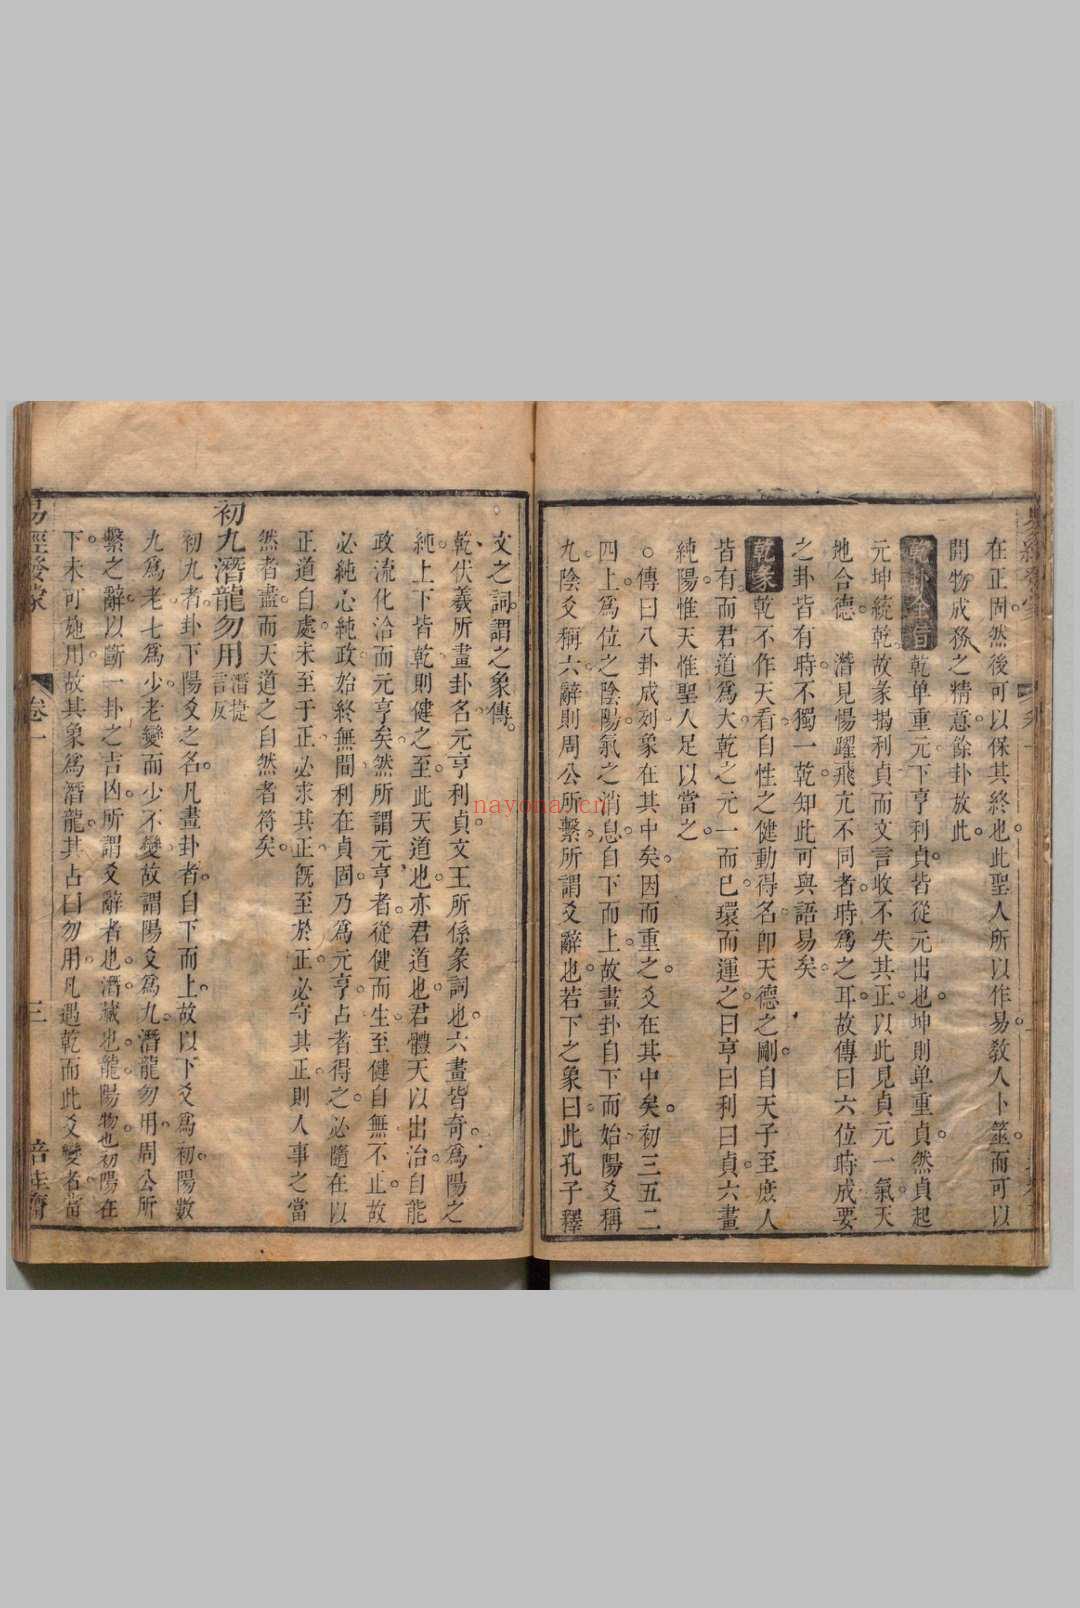 在正固然後可以保其終也此聖人所以作易教人卜筮而可以
開物成務之精意餘卦放此
乾卦全旨乾单重元下亨利貞皆從元出也坤則单重貞然貞起
元坤統乾故彖揭利貞而文言收不失其正以此見貞元一氣天
地合德潛見惕躍飛亢不同者時為之耳故傳曰六位時成要
之卦皆有時不獨一乾知此可與語易矣
乾彖乾不作天看自性之健動得名卽天德之剛自天子至庶人
皆有而君道爲大乾之元一而已環而運之曰亨曰利曰貞六畫
純陽惟天惟聖人足以當之
○傳曰八卦成列象在其中矣因而重之爻在其中矣初三五二
四上爲位之陰陽氣之消息自下而上故畫卦自下而始陽爻稱
九陰爻稱六辭則周公所繫所謂爻辭也若下之象曰此孔子釋
文之詞謂之象傳
乾伏羲所畫卦名元亨利貞文王所係彖詞也六畫皆奇爲陽之
純上下皆乾則健之至此天道也亦君道也君體天以出治自能
政流化洽而元亨矣然所謂元亨者從健而生至健自無不正故
必純心純政始終無間利在貞固乃爲元亨占者得之必隨在以
正道自處未至于正必求其正旣至於正必守其正則人事之當
然者盡而天道之自然者符矣
初九潛龍勿用潛捷言反
初九者卦下陽爻之名凡畫卦者自下而上故以下爻爲初陽數
九爲老七爲少老變而少不變故謂陽爻爲九潛龍勿用周公所
繫之辭以斷一卦之吉凶所謂爻辭者也潛藏也龍陽物也初陽在
下未可施用故其象爲潛龍其占曰勿用凡遇乾而此爻變者當
易經發蒙 卷一 三